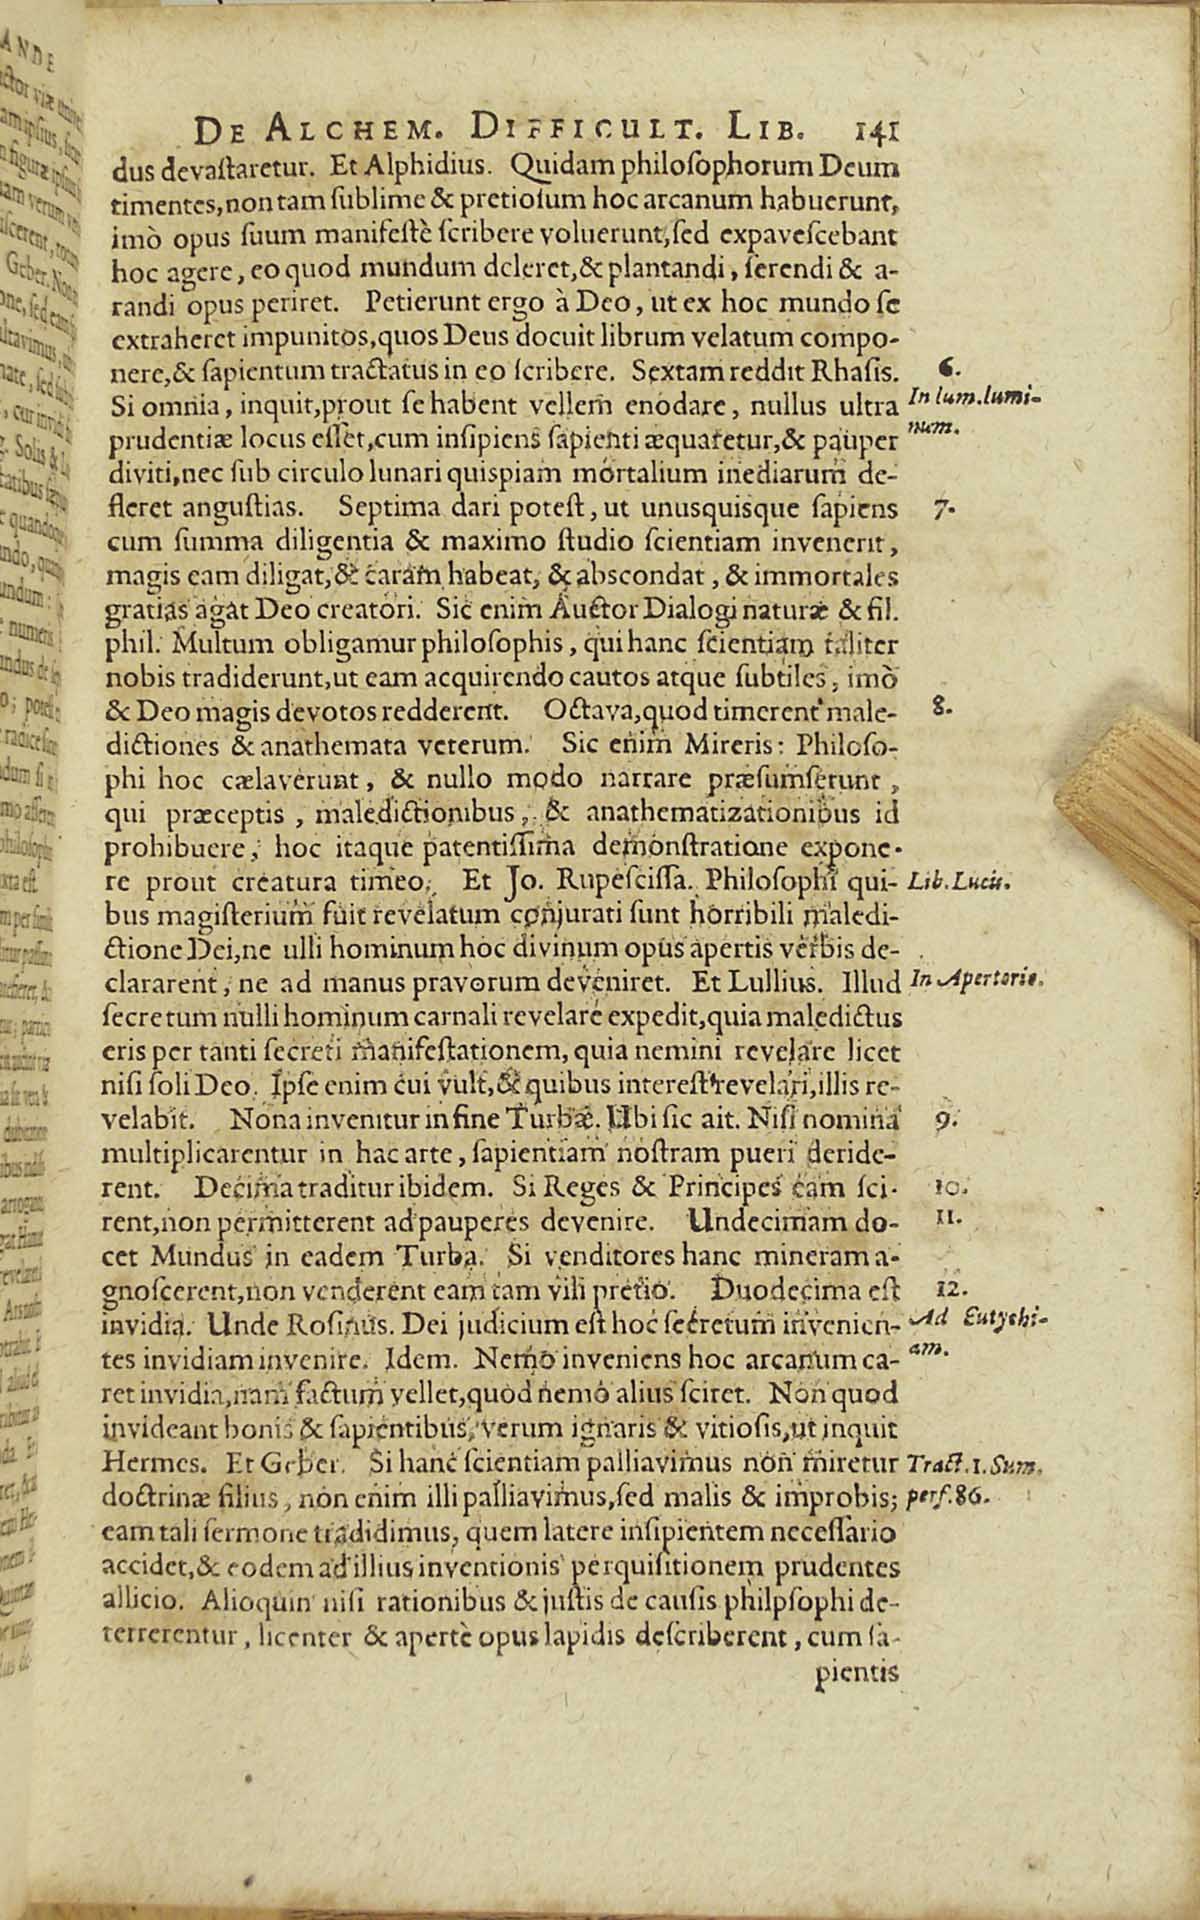 DE ALCHEM. DIFFICULT. LIB. 141
dus devastaretur. Et Alphidius. Quidam philosophorum Deum
timentes, non tam sublime & pretiosum hoc arcanum habuerunt,
imò opus suum manifestè scribere voluerunt, sed expavescebant
hoc agere, eo quod mundum deleret, & plantandi, serendi & a-
randi opus periret. Petierunt ergo à Deo, ut ex hoc mundo se
extraheret impunitos, quos Deus docuit librum velatum compo-
nere, & sapientum tractatus in eo scribere. Sextam reddit Rhasis. 6.
Si omnia, inquit, prout se habent vellem enodare, nullus ultra In lum. lumi-
prudentiæ locus esset, cum insipiens sapienti æquaretur, & pauper num.
diviti, nec sub circulo lunari quispiam mortalium inediarum de-
fleret angustias. Septima dari potest, ut unusquisque sapiens 7.
cum summa diligentia & maximo studio scientiam invenerit,
magis eam diligat, & caram habeat, & abscondat, & immortales
gratias agat Deo creatori. Sic enim Auctor Dialogi naturæ & fil.
phil. Multum obligamur philosophis, qui hanc scientiam taliter
nobis tradiderunt, ut eam acquirendo cautos atque subtiles, imò
& Deo magis devotos redderent. Octava, quod timerent male- 8.
dictiones & anathemata veterum. Sic enim Mireris: Philoso-
phi hoc cælaverunt, & nullo modo narrare præsumserunt,
qui præceptis, maledictionibus, & anathematizationibus id
prohibuere, hoc itaque patentissima demonstratione expone-
re prout creatura timeo. Et Jo. Rupescissa. Philosophi qui- Lib. Lucis.
bus magisterium fuit revelatum conjurati sunt horribili maledi-
ctione Dei, ne ulli hominum hoc divinum opus apertis verbis de-
clararent, ne ad manus pravorum deveniret. Et Lullius. Illud In Apertorio.
secretum nulli hominum carnali revelare expedit, quia maledictus
eris per tanti secreti manifestationem, quia nemini revelare licet
nisi soli Deo. Ipse enim cui vult, & quibus interest revelari, illis re-
velabit. Nona invenitur in fine Turbæ. Ubi sic ait. Nisi nomina 9.
multiplicarentur in hac arte, sapientiam nostram pueri deride-
rent. Decima traditur ibidem. Si Reges & Principes eam sci- 10.
rent, non permitterent ad pauperes devenire. Undecimam do- 11.
cet Mundus in eadem Turba. Si venditores hanc mineram a-
gnoscerent, non venderent eam tam vili pretio. Duodecima est 12.
invidia. Unde Rosinus. Dei judicium est hoc secretum invenien- Ad Eutychi-
tes invidiam invenire. Idem. Nemo inveniens hoc arcanum ca- am.
ret invidia, nam factum vellet, quod nemo alius sciret. Non quod
invideant bonis & sapientibus, verum ignaris & vitiosis, ut inquit
Hermes. Et Geber. Si hanc scientiam palliavimus non miretur Tract. 1. Sum.
doctrinæ filius, non enim illi palliavimus, sed malis & improbis; perf. 86.
eam tali sermone tradidimus, quem latere insipientem necessario
accidet, & eodem ad illius inventionis perquisitionem prudentes
allicio. Alioquin nisi rationibus & justis de causis philosophi de-
terrerentur, licenter & apertè opus lapidis describerent, cum sa-
pientis